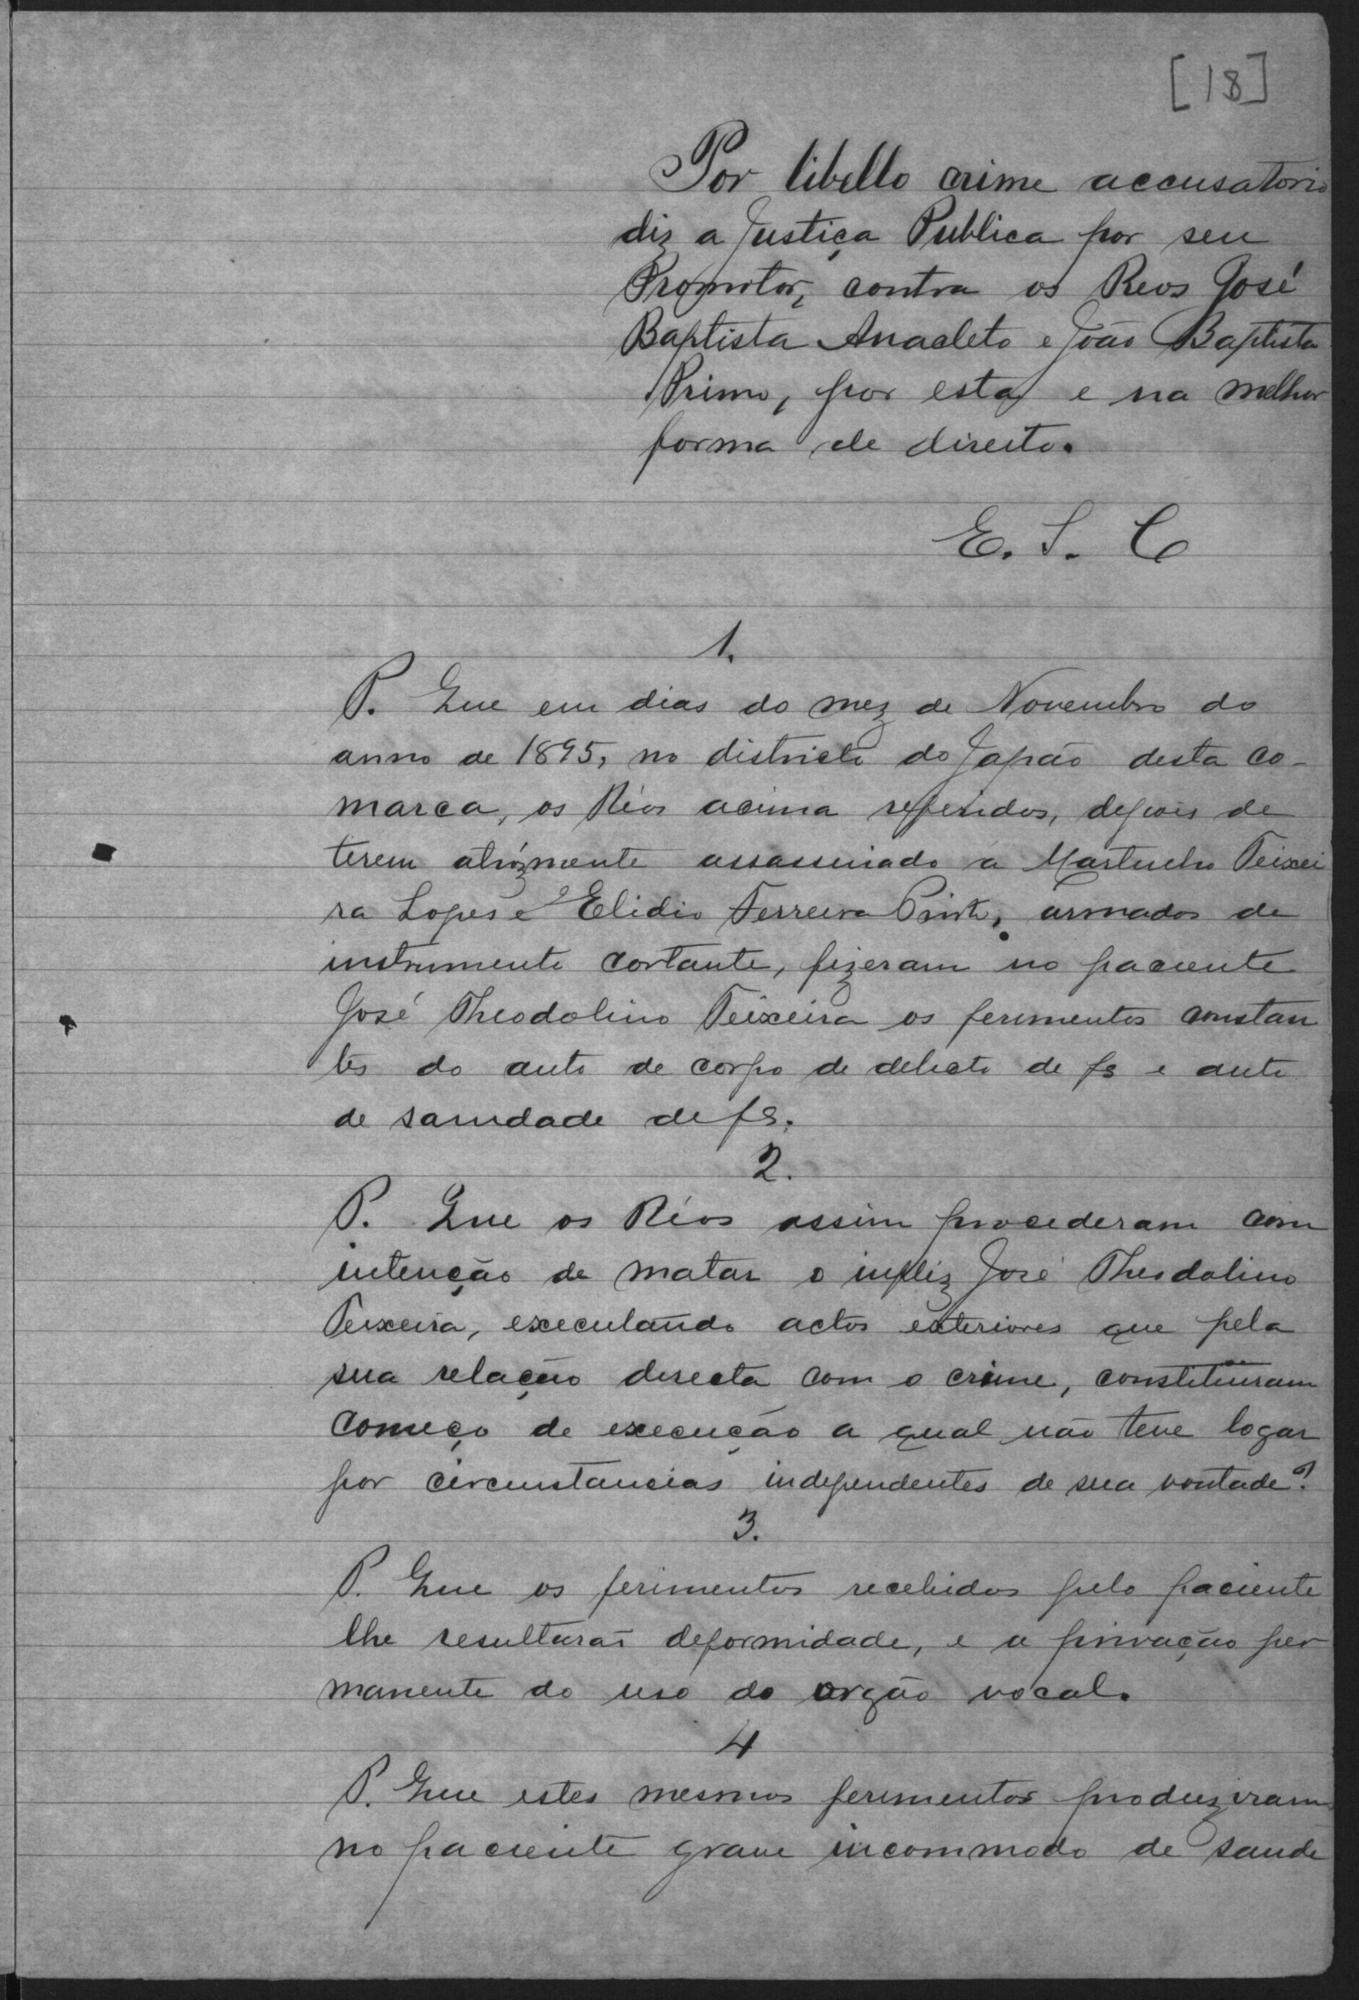 [18]
Por libello crime accusatorio
diz a Justiça Publica por seu
Promotor, contra os Reos José
Baptista Anacleto e João Baptista
Primo, por esta e na melhor
forma de direito.
E. S. C
1.
P. Que em dias do mez de Novembro do
anno de 1895, no districto do Japão desta co-
marca, os Réos acima referidos, depois de
terem atrózmente assassinado a Martinho Teixei
ra Lopes e Elidio Ferreira Pinto, armados de
instrumento cortante, fizeram no paciente
José Theodolino Teixeira os ferimentos constan
tes do auto de corpo de delicto de fs e auto
de sanidade de fs.
2.
P. Que os Réos assim procederam com
intenção de matar o infeliz José Theodolino
Teixeira, executando actos exteriores que pela
sua relação directa com o crime, constituiram
começo de execução a qual não teve logar
por circunstancias independentes de sua vontade.
3.
P. Que os ferimentos recebidos pelo paciente
lhe resultarão deformidade, e a privação per
manente do uso do orgão vocal.
4
P. Que estes mesmos ferimentos produziram
no paciente grave incommodo de saude